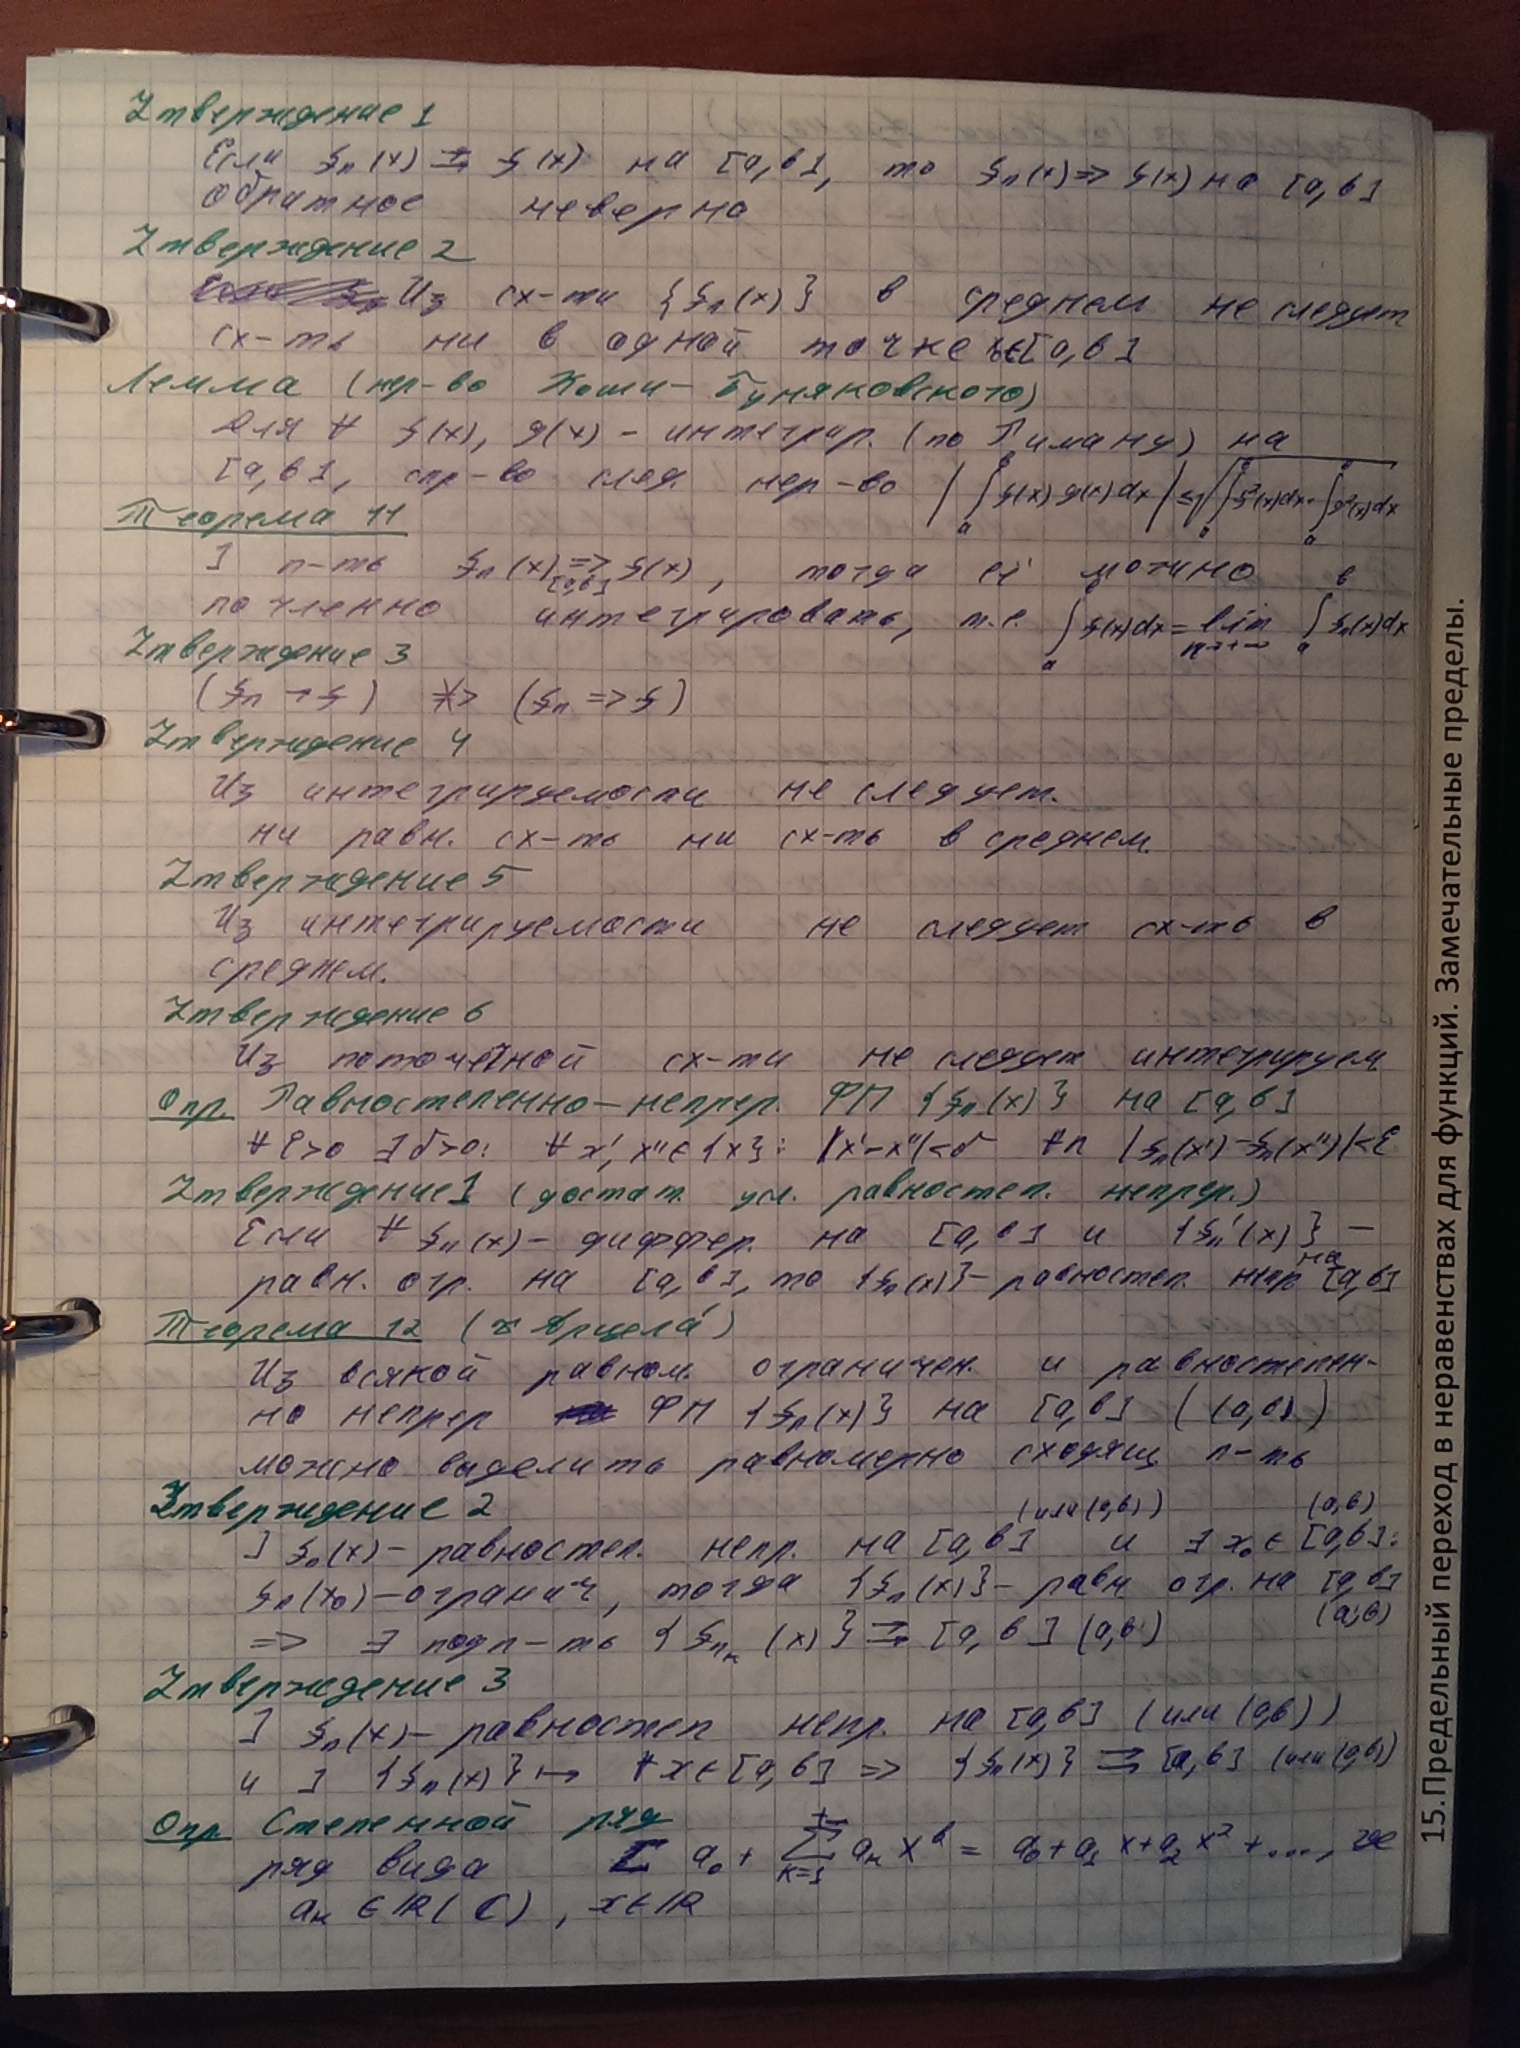 Утверждение 1
Если fn(x) ⇉ f(x) на [a,b], то fn(x) => f(x) на [a,b]
обратное неверно
Утверждение 2
Из сх-ти {fn(x)} в среднем не следует
сх-ть ни в одной точке x∈[a,b]
Лемма (нер-во Коши-Буняковского)
Для ∀ f(x), g(x) - интегрир. (по Риману) на
[a,b], спр-во след. нер-во |∫ₐᵇ f(x) g(x) dx| ≤ √(∫ₐᵇ f²(x)dx · ∫ₐᵇ g²(x)dx
Теорема 11
] п-ть fn(x) => f(x), тогда её можно
[a,b]
почленно интегрировать, т.е. ∫ₐᵇ f(x)dx = lim n→+∞ ∫ₐᵇ fn(x)dx
Утверждение 3
(fn → f) ≠> (fn => f)
Утверждение 4
Из интегрируемости не следует.
ни равн. сх-ть ни сх-ть в среднем.
Утверждение 5
Из интегрируемости не следует сх-ть в
среднем.
Утверждение 6
Из поточечной сх-ти не следует интегрируем
Опр. Равностепенно-непрер. ФП {fn(x)} на [a,b]
∀ε>0 ∃δ>0: ∀x', x''∈{x}: |x'-x''|<δ ∀n |fn(x')-fn(x'')|<ε
Утверждение 1 (достат. усл. равностеп. непрер.)
Если ∀ fn(x) - диффер. на [a,b] и {fn'(x)} -
равн. огр. на [a,b], то {fn(x)} - равностеп. непр на [a,b]
Теорема 12 (Арцела́)
Из всякой равном. ограничен. и равностепен-
но непрер ФП {fn(x)} на [a,b] ((a,b))
можно выделить равномерно сходящ п-ть
Утверждение 2
(или (a,b)) (a,b)
] fn(x) - равностеп. непр. на [a,b] и ∃x₀∈[a,b]:
fn(x₀) - огранич, тогда {fn(x)} - равн. огр. на [a,b]
(a,b)
=> ∃ подп-ть {fnₖ(x)} ⇉ [a,b] (a,b)
Утверждение 3
] fn(x) - равностеп непр. на [a,b] (или (a,b))
и ] {fn(x)} ↦ ∀x∈[a,b] => {fn(x)} ⇉ [a,b] (или (a,b))
Опр. Степенной ряд
ряд вида a₀ + ∑ₖ₌₁^(+∞) aₖ xᵏ = a₀ + a₁x + a₂x² + ..., где
aₖ ∈ ℝ(ℂ), x∈ℝ
15.Предельный переход в неравенствах для функций. Замечательные пределы.